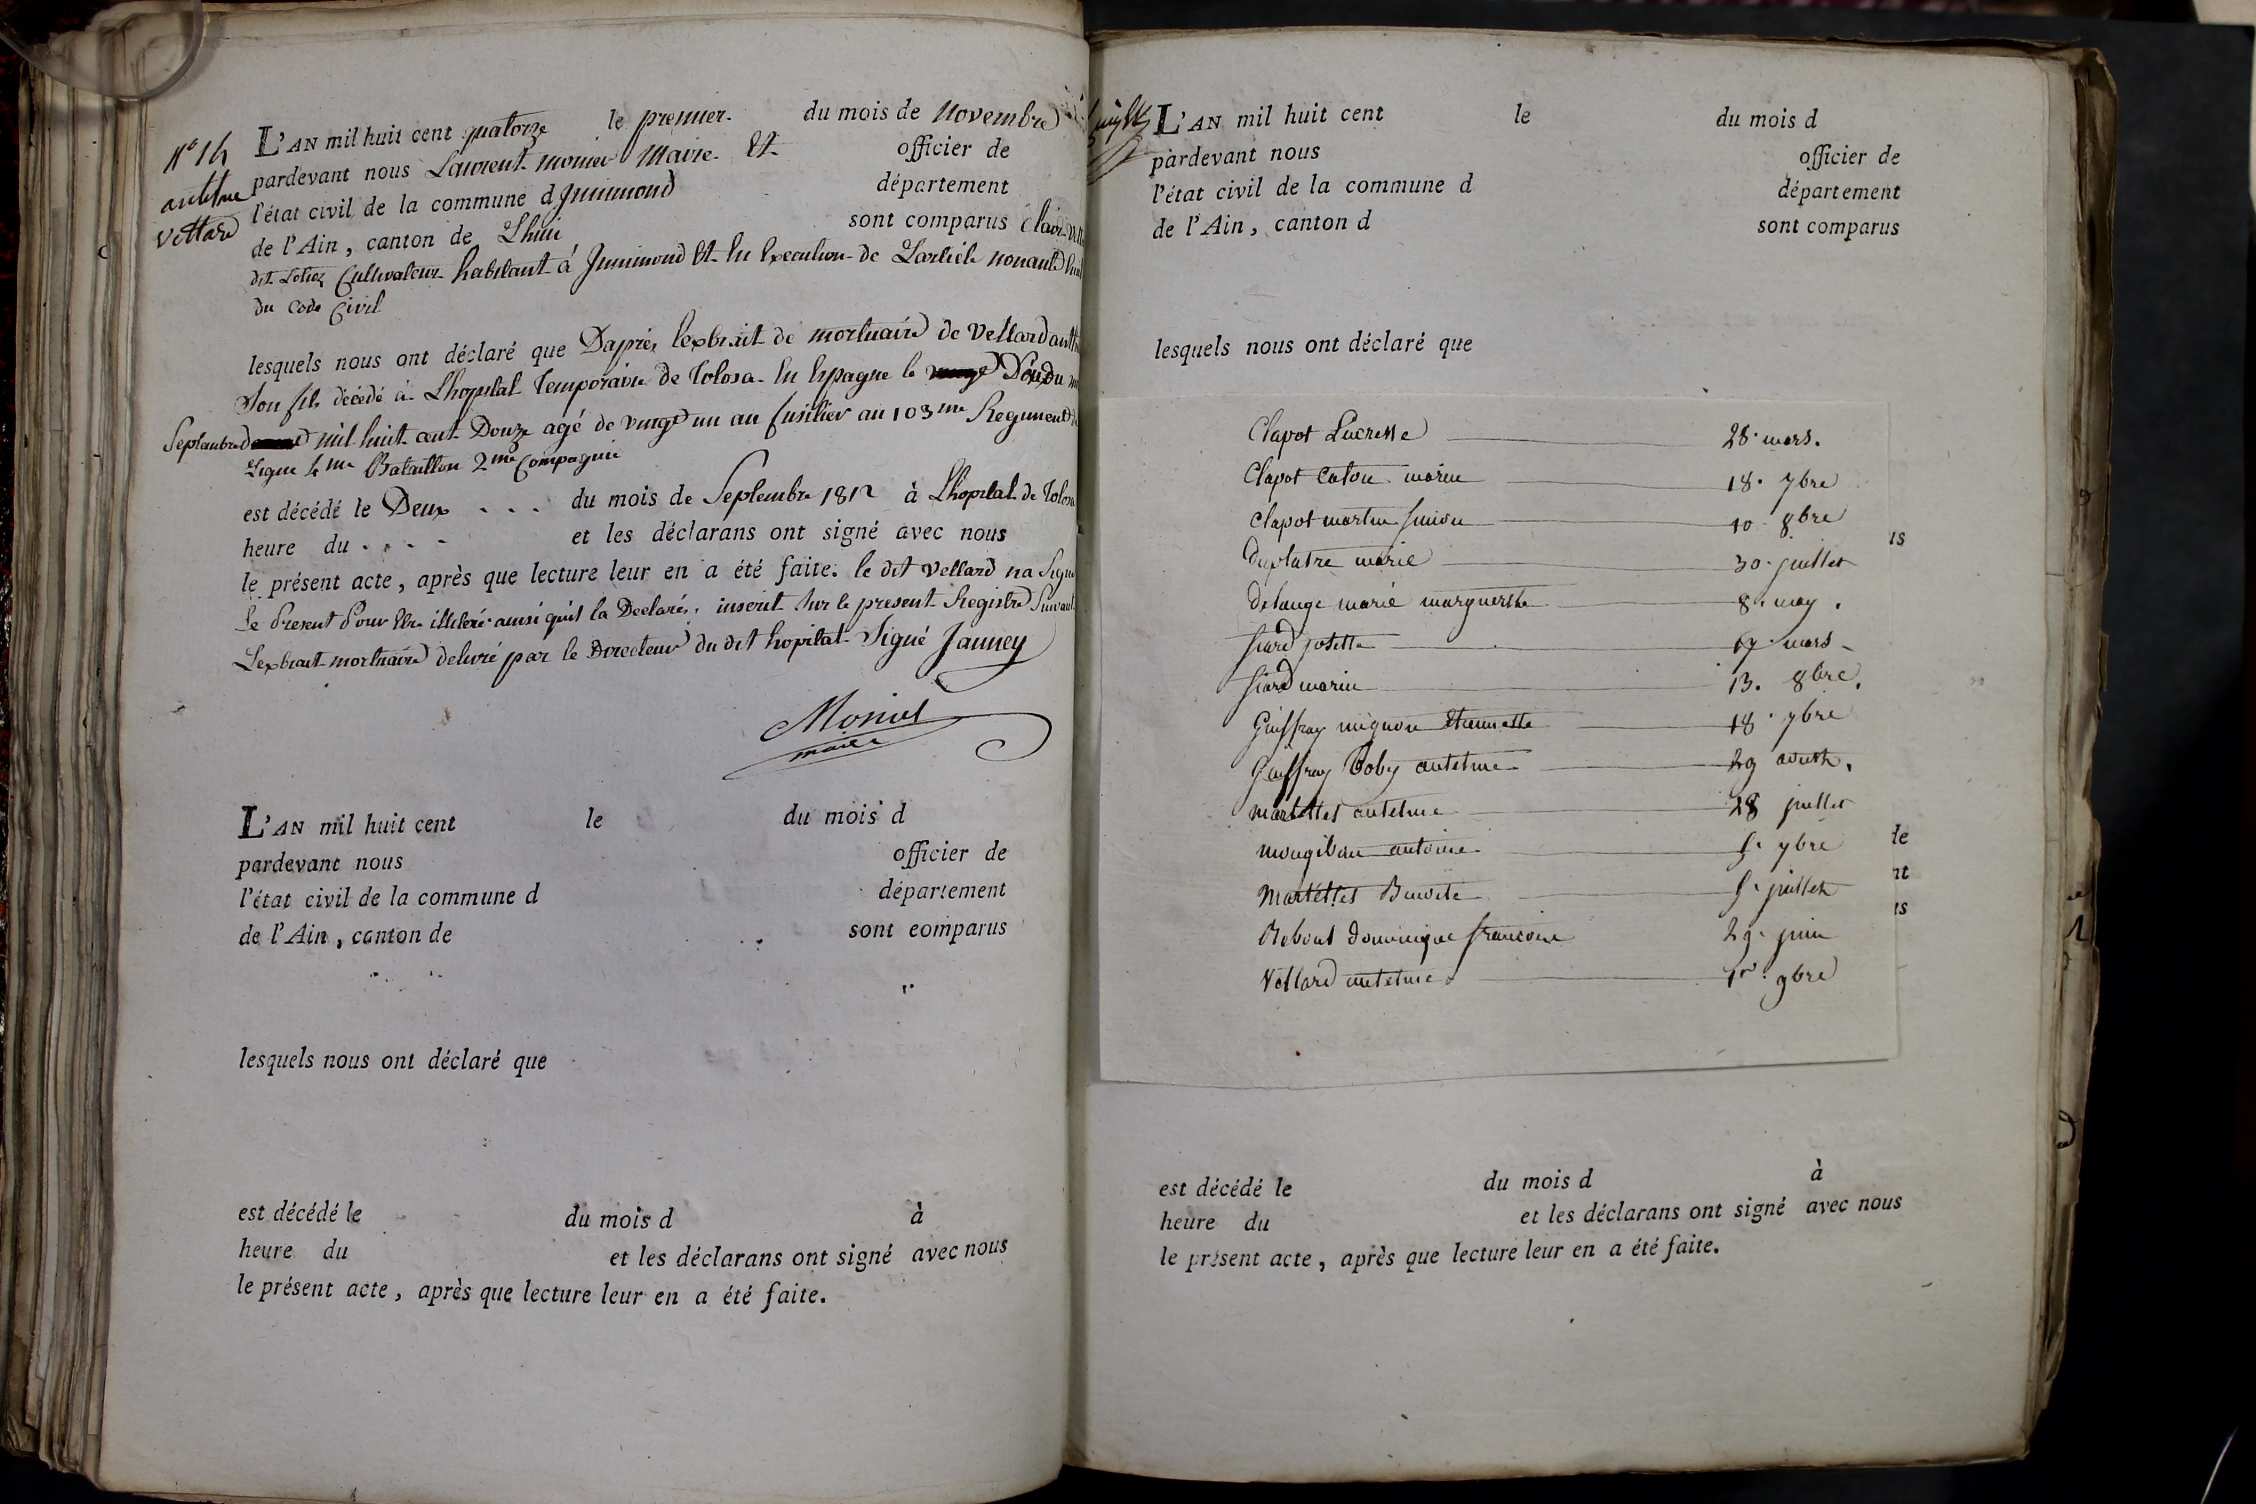 N° 14
antelme
Vettard
L'AN mil huit cent quatorze le premier du mois de Novembre
pardevant nous Laurent monier Maire et officier de
l'état civil de la commune d Jnnimond département
de l'Ain, canton de Lhuis sont comparus Claude
dit Cultivateur habitant à Jnnimond Et En Execution de Larticle nonante huit
du Code Civil
lesquels nous ont déclaré que Dapres lexbrait de mortuaire de Vettard
Son fils décédé à Lhopital Temporaire de Tolosa En Espagne le Deux du
Septembre mil huit cent Douze agé de vingt un an fusilier au 103me Regiment
Ligne 4me Bataillon 2me Compagnie
est décédé le Deux . . . du mois de Septembre 1812 à Lhopital de Tolosa
heure du . . . - et les déclarans ont signé avec nous
le présent acte, après que lecture leur en a été faite. le dit Vettard na Signé
Le Present Pour Etre illiteré ainsi quil la Declaré, inscrit Sur le present Registre Suivant
Lexbrait mortuaire delivré par le Directeur du dit hopital Signé Janney
Monier
maire
L'AN mil huit cent le du mois d
pardevant nous officier de
l'état civil de la commune d département
de l'Ain, canton de sont comparus
lesquels nous ont déclaré que
est décédé le du mois d à
heure du et les déclarans ont signé avec nous
le présent acte, après que lecture leur en a été faite.
L'AN mil huit cent le du mois d
pardevant nous officier de
l'état civil de la commune d département
de l'Ain, canton d sont comparus
lesquels nous ont déclaré que
Clapot Lucresse 28. mars.
Clapot marie 18. 7bre
Clapot martin 10 8bre
Duplatre marie 30. juillet
Delange marie marguerite 8. may.
fiard josette 17 mars
fiard marie 13. 8bre.
Guiffray mignon Etiennette 18. 7bre
Guiffray Boby antelme 29 aoust.
martettet antelme 28 juillet
antoine 5. 7bre
Martettet Benoite 5. juillet
Rebout dominique francoise 29. juin
Vettard antelme 1er. 9bre
us
de
nt
us
est décédé le du mois d à
heure du et les déclarans ont signé avec nous
le présent acte, après que lecture leur en a été faite.